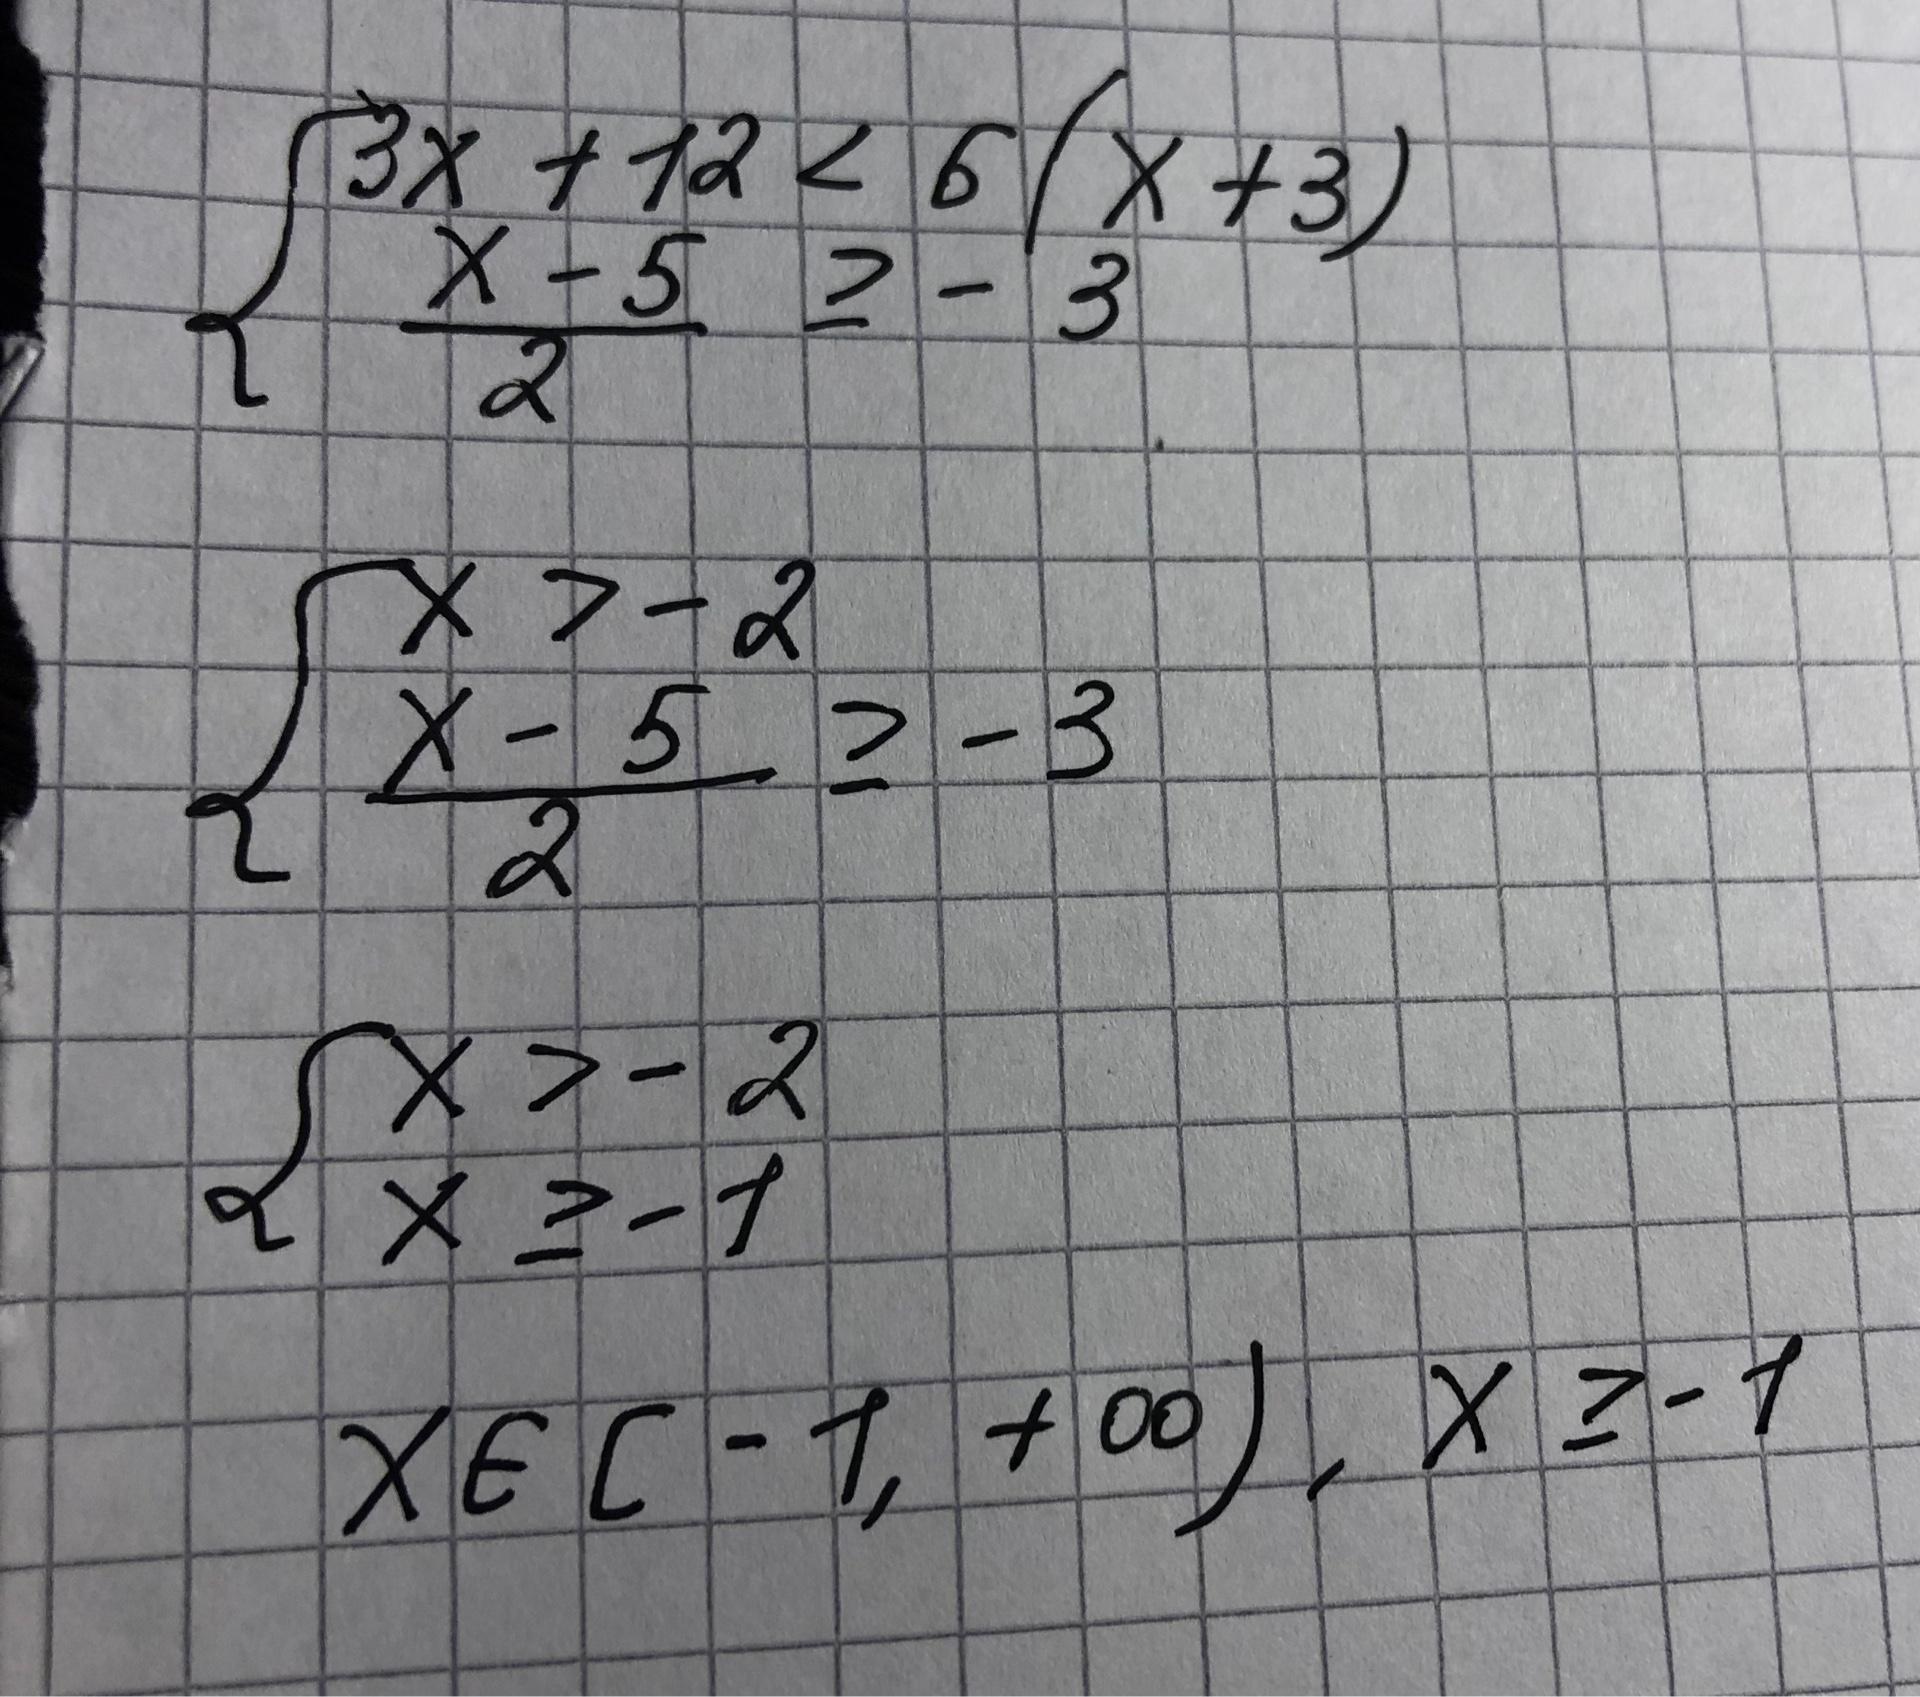 3x + 12 < 6(x + 3)
x - 5 ≥ - 3
2
x > - 2
x - 5 ≥ - 3
2
x > - 2
x ≥ - 1
x ∈ [ - 1, + ∞), x ≥ - 1